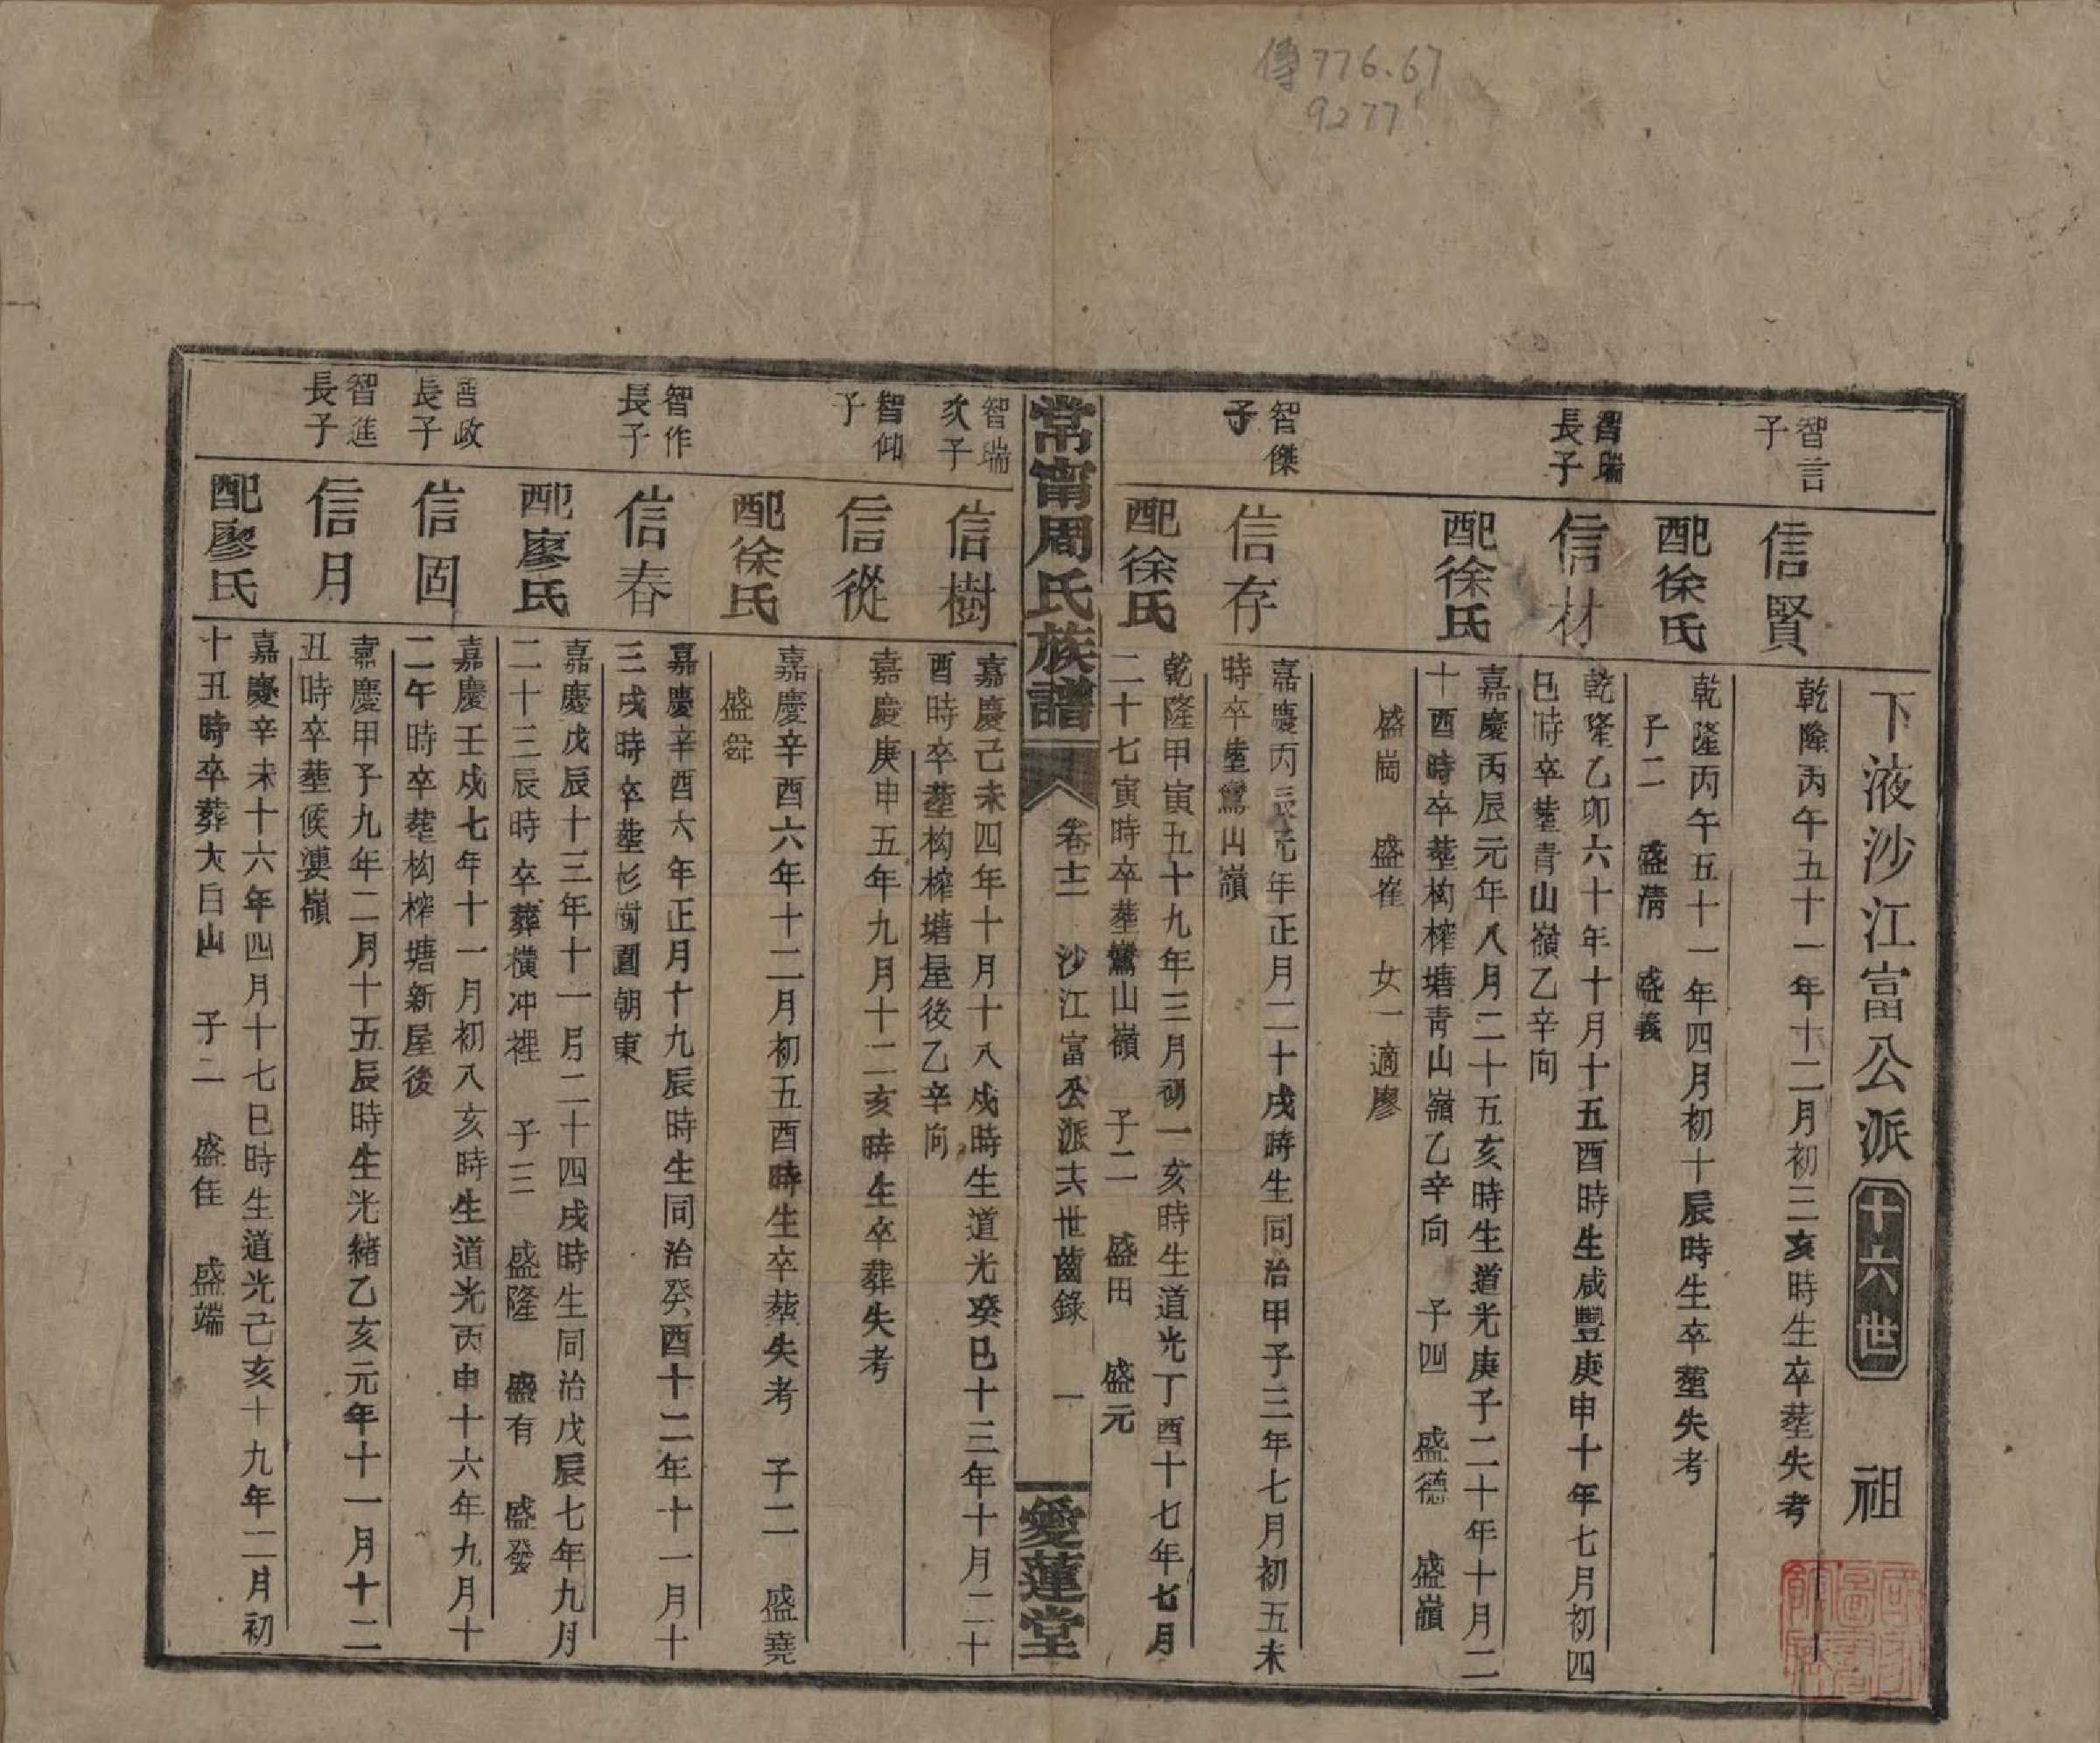 傳776.67
9277
下液沙江富公派 十六世 祖
智言子
信賢
乾隆丙午五十一年十二月初三亥時生卒塟失考
配徐氏
乾隆丙午五十一年四月初十辰時生卒塟失考
子二 盛清 盛義
智瑞長子
信材
乾隆乙卯六十年十月十五酉時生咸豐庚申十年七月初四
巳時卒塟青山嶺乙辛向
配徐氏
嘉慶丙辰元年八月二十五亥時生道光庚子二十年十月二
十酉時卒塟构榨塘青山嶺乙辛向 子四 盛德 盛嶺
盛崗 盛崔 女一適廖
智傑子
信存
嘉慶丙辰元年正月二十戌時生同治甲子三年七月初五未
時卒塟鴬山嶺
配徐氏
乾隆甲寅五十九年三月初一亥時生道光丁酉十七年七月
二十七寅時卒塟鴬山嶺 子二 盛田 盛元
常甯周氏族譜 卷十二 沙江富公派十六世齒錄 一 愛蓮堂
智瑞次子
信樹
嘉慶己未四年十月十八戌時生道光癸巳十三年十月二十
酉時卒塟构榨塘屋後乙辛向
智仰子
信從
嘉慶庚申五年九月十二亥時生卒葬失考
配徐氏
嘉慶辛酉六年十二月初五酉時生卒葬失考 子二 盛堯
盛舜
智作長子
信春
嘉慶辛酉六年正月十九辰時生同治癸酉十二年十一月十
三戌時卒塟杉樹園朝東
配廖氏
嘉慶戊辰十三年十一月二十四戌時生同治戊辰七年九月
二十三辰時卒葬橫冲裡 子三 盛隆 盛有 盛發
智政長子
信固
嘉慶壬戌七年十一月初八亥時生道光丙申十六年九月十
二午時卒塟构榨塘新屋後
智進長子
信月
嘉慶甲子九年二月十五辰時生光緒乙亥元年十一月十二
丑時卒塟候嶺
配廖氏
嘉慶辛未十六年四月十七巳時生道光己亥十九年二月初
十丑時卒葬大白山 子二 盛任 盛端